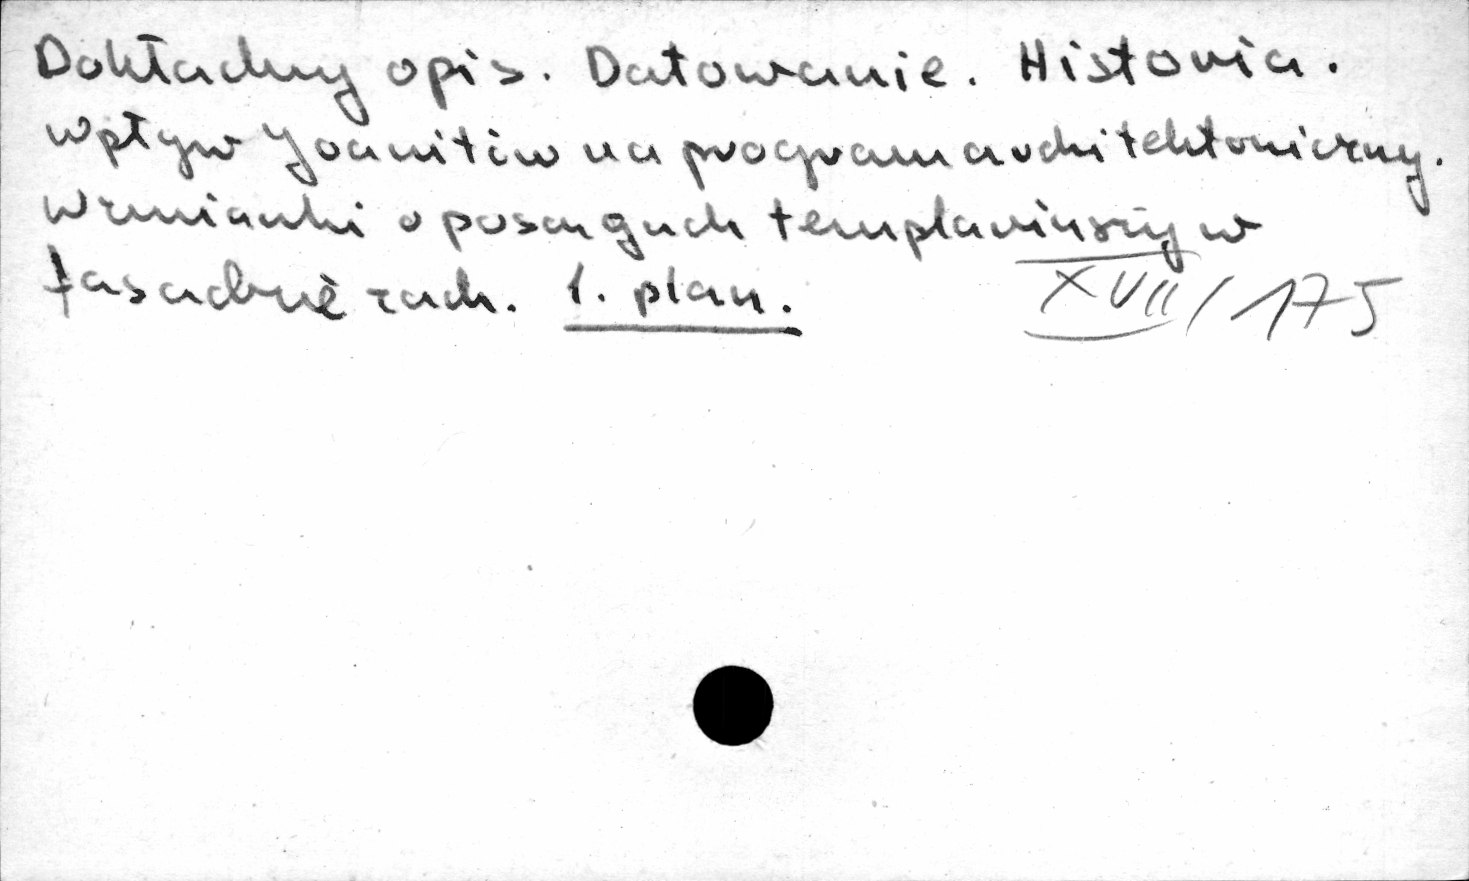 Dokładny opis. Datowanie. Historia.
Wpływ Joanitów na program architektoniczny.
Wzmianki o posągach templariuszy w
fasadzie zach. 1. plan.
XVII/175